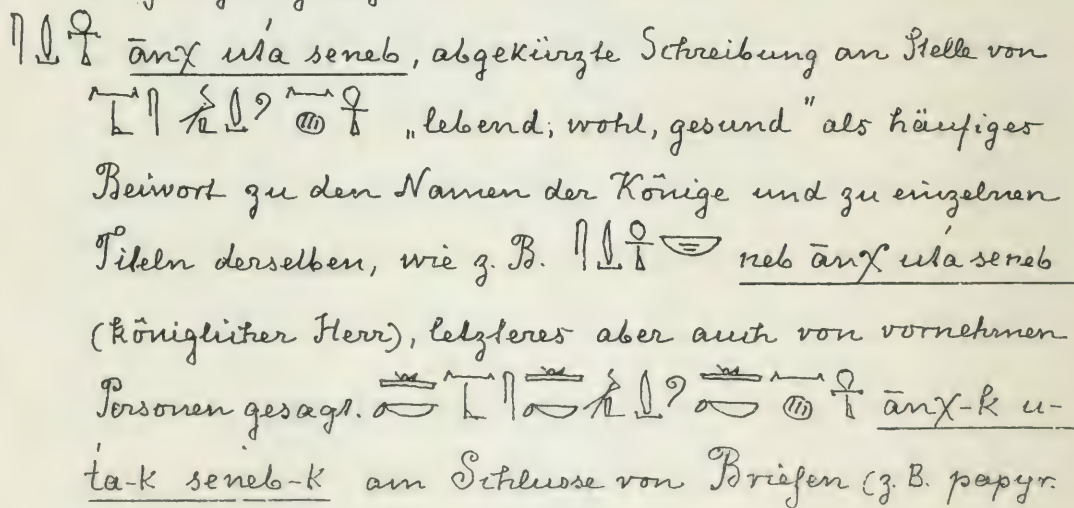 𓋴𓍑𓋹 ānχ uťa seneb, abgekürzte Schreibung an Stelle von
„lebend, wohl, gesund" als häufiges
Beiwort zu den Namen der Könige und zu einzelnen
Titeln derselben, wie z. B. 𓋴𓍑𓋹𓎟 neb ānχ uťa seneb
(königlicher Herr), letzteres aber auch von vornehmen
Personen gesagt. ānχ-k u-
ťa-k seneb-k am Schlusse von Briefen (z. B. papyr.